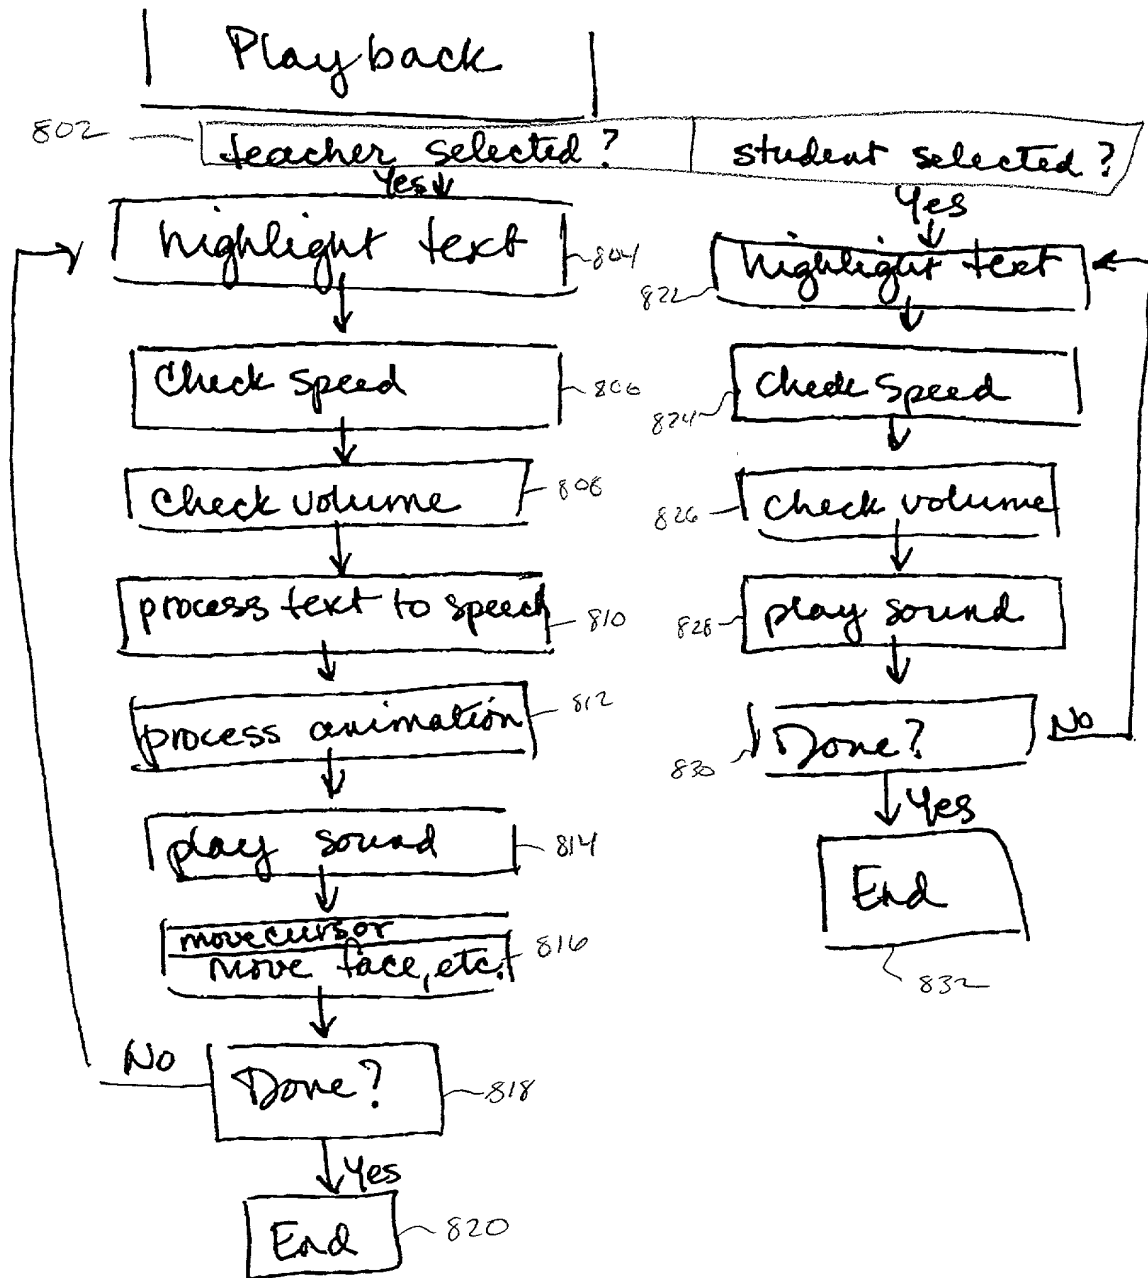 Playback
802 teacher selected? student selected?
Yes
highlight text 804
Check speed 806
Check volume 808
process text to speech 810
process animation 812
play sound 814
move cursor
move face, etc. 816
No
Done? 818
Yes
End 820
Yes
highlight text
822
Check Speed
824
826 Check volume
828 play sound
Done? No
830
Yes
End
832